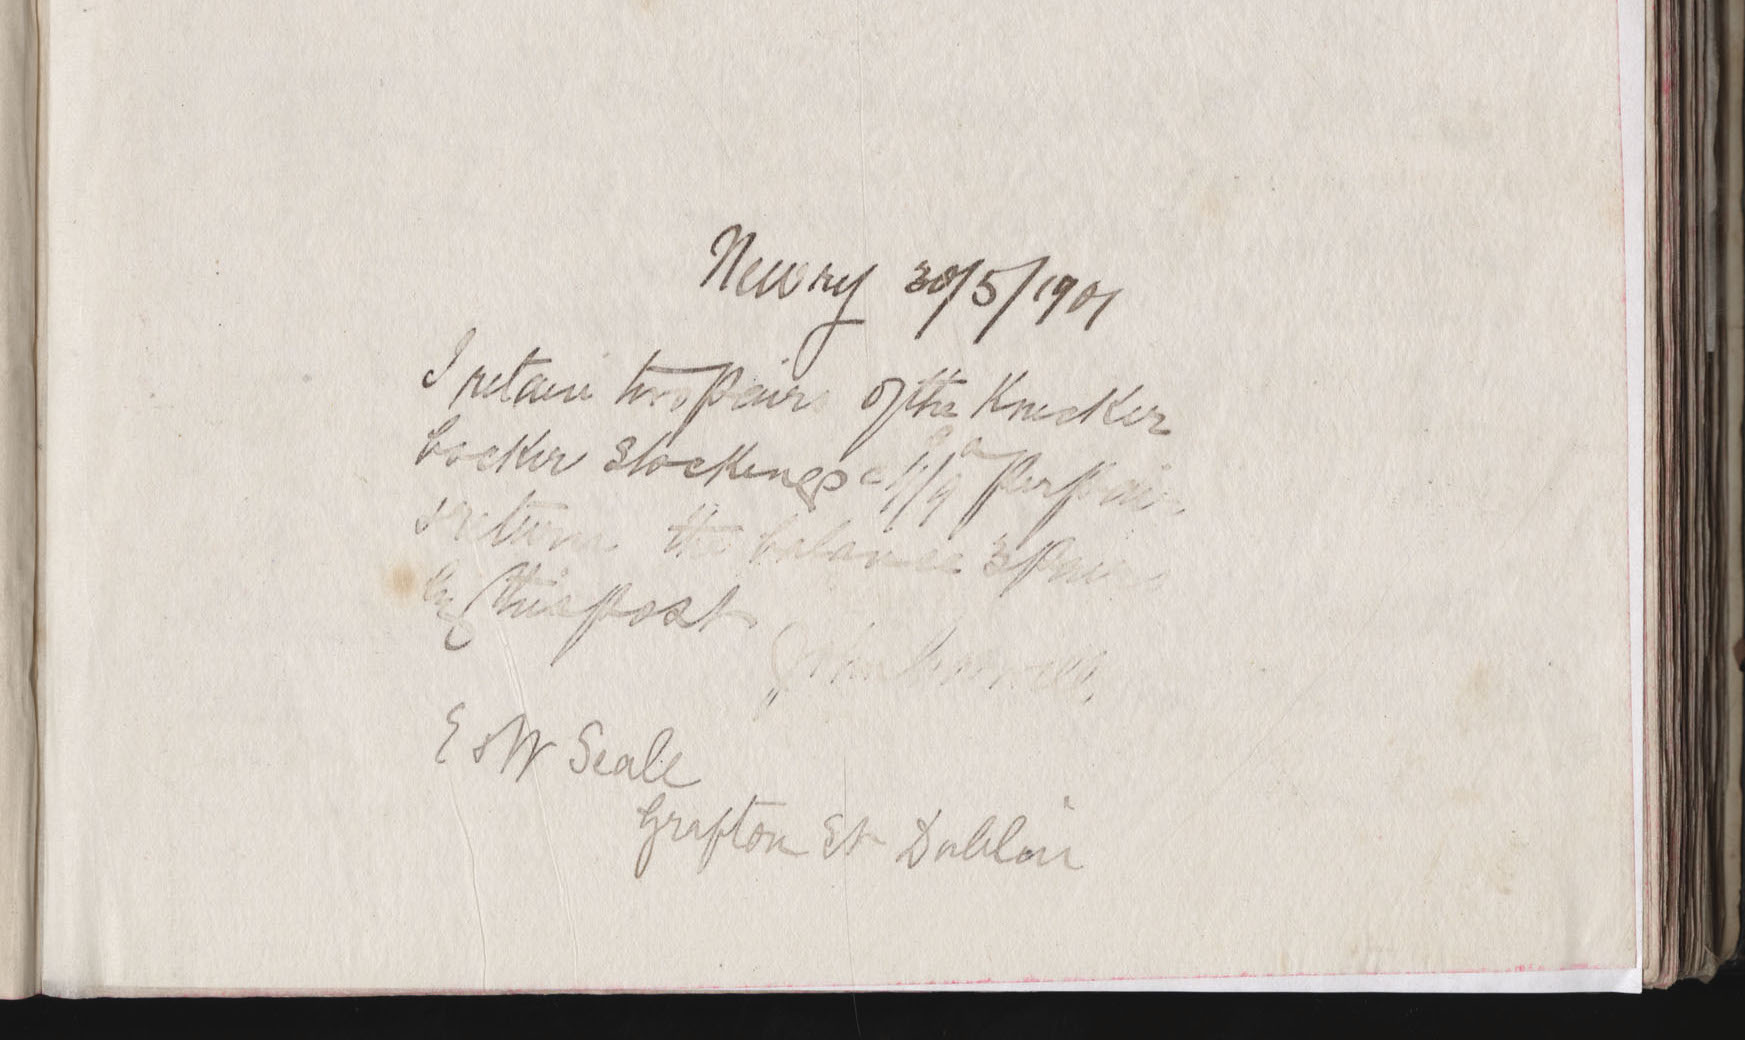 Newry 30/5/1901
I retain two pairs of the Knicker
bocker Stockings @ 1/9 per pair
& return the balance 3 pairs
by this post
John
E & W Seale
Grafton St Dublin